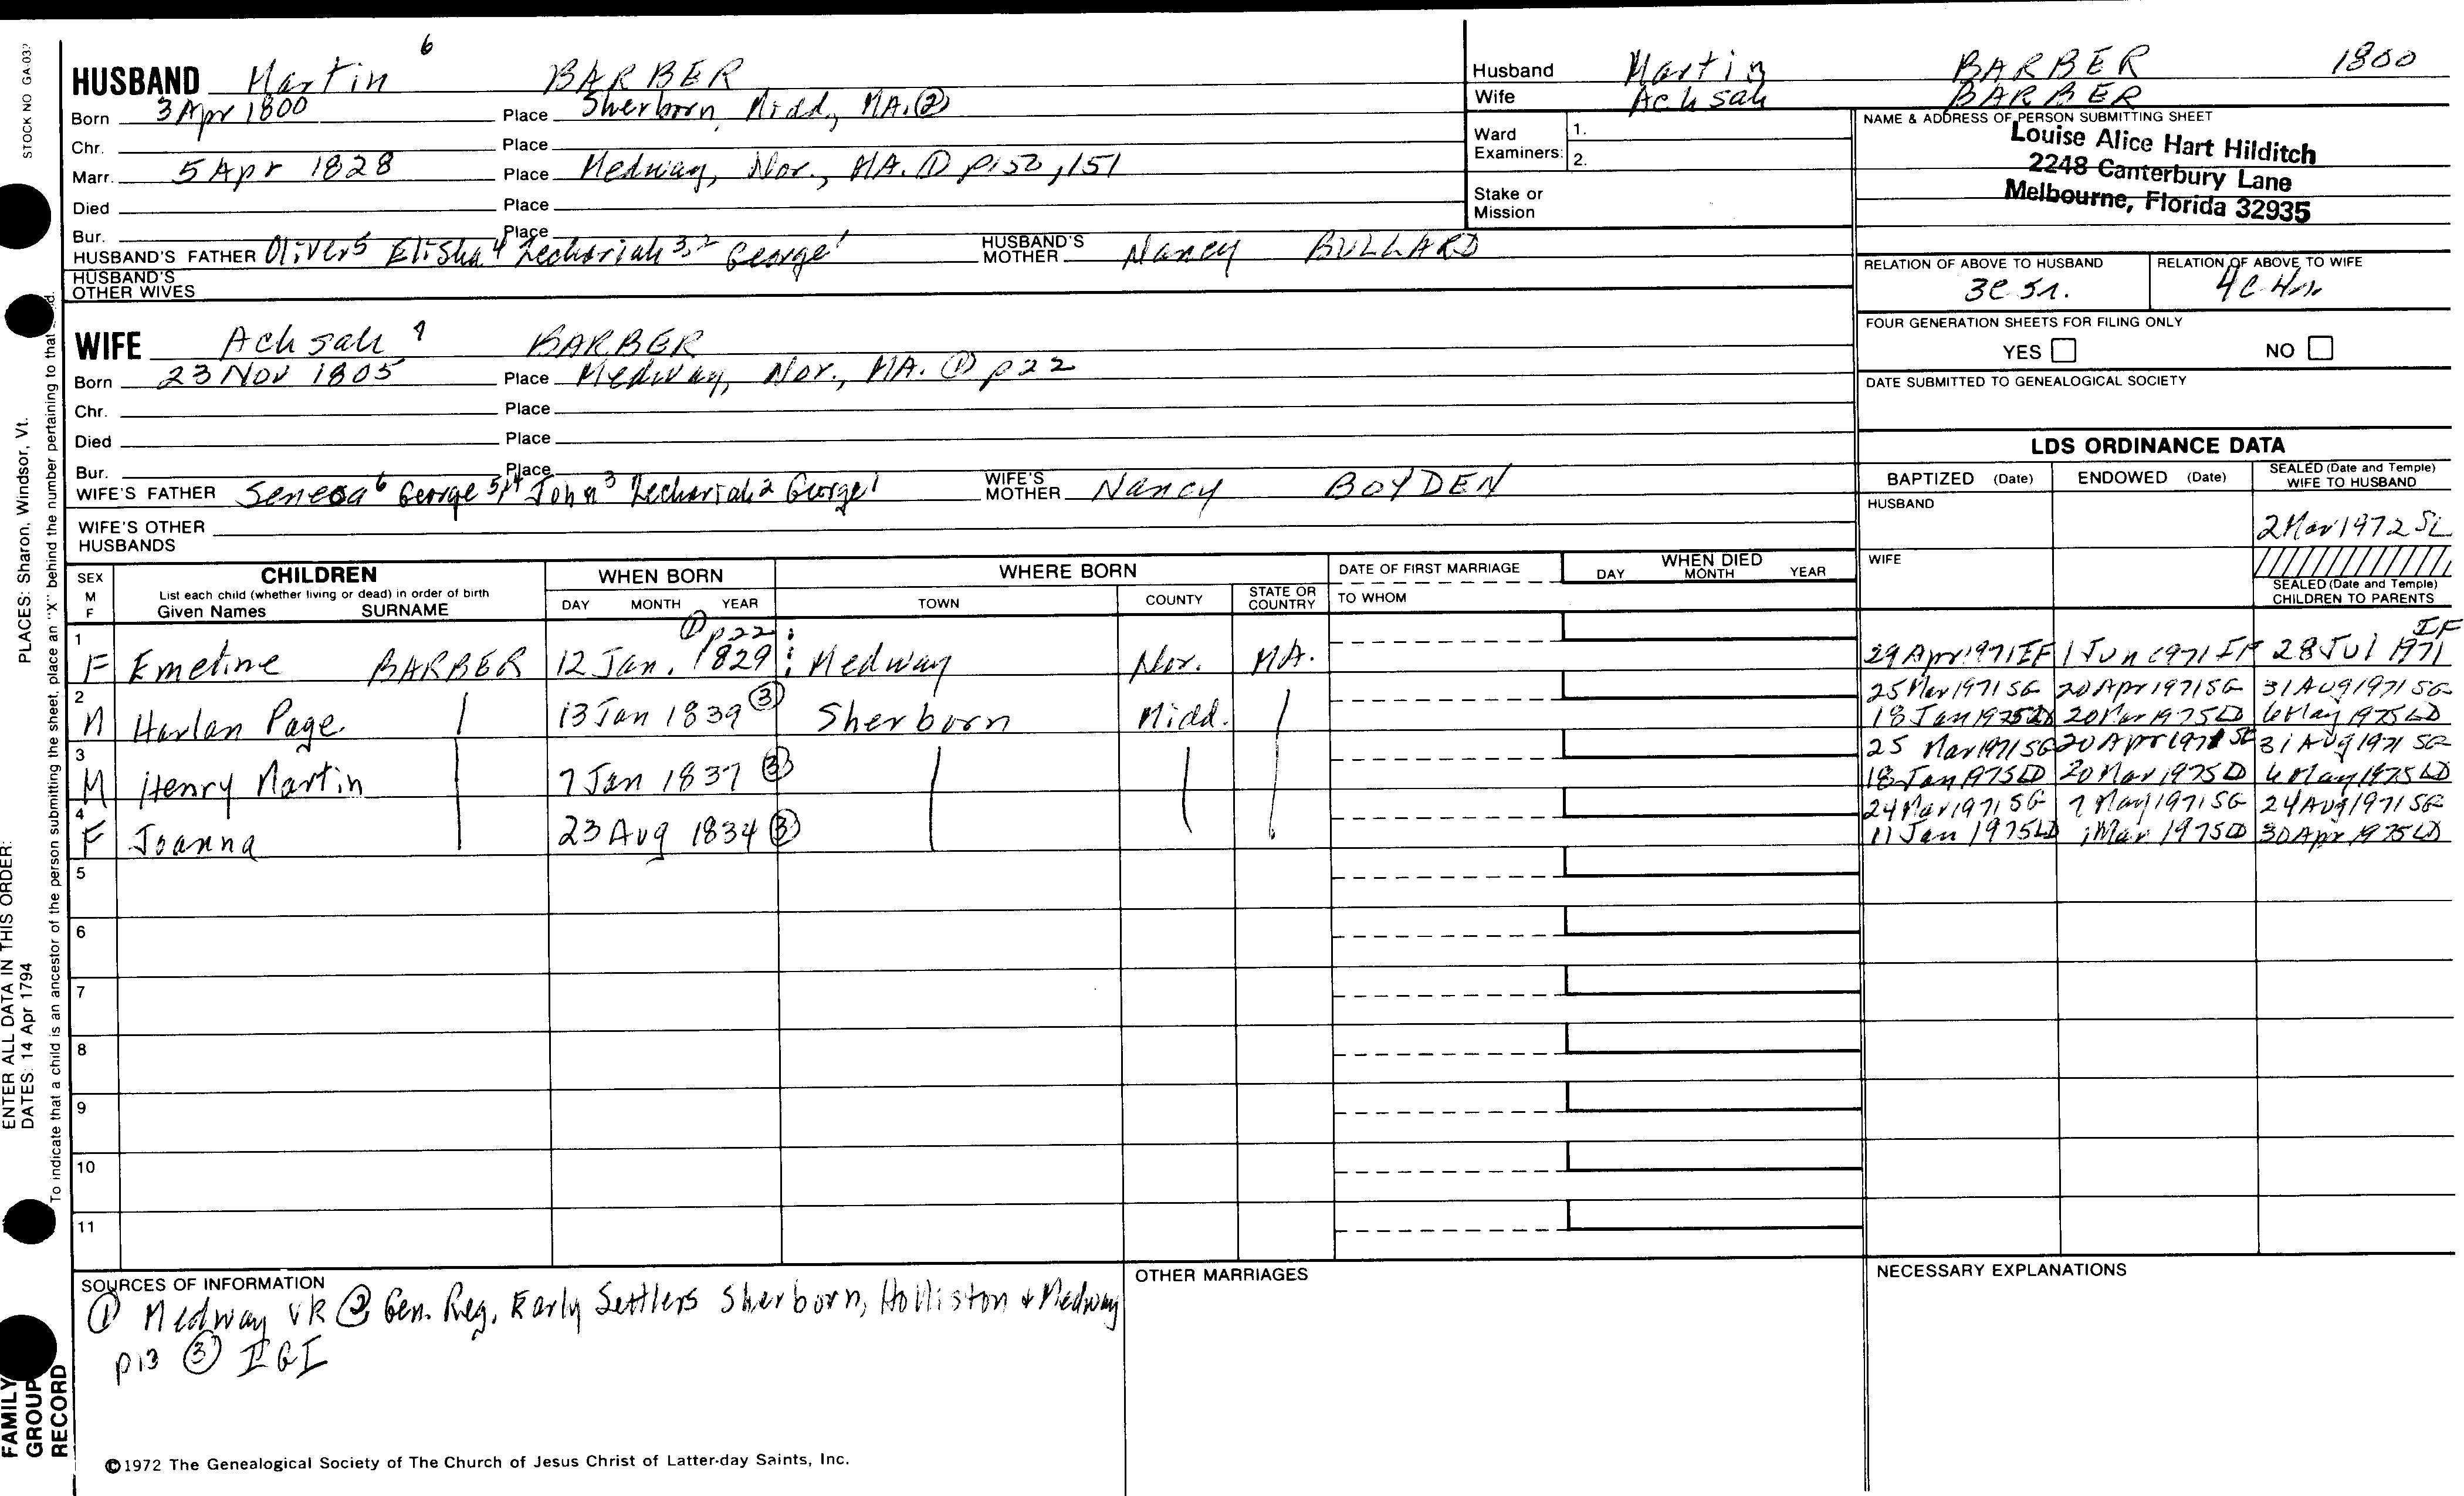 HUSBAND Martin 6 BARBER
Born 3 Apr 1800 Place Sherborn, Midd., MA. ②
Chr. Place
Marr. 5 Apr 1828 Place Medway, Nor., MA. ① p150, 151
Died Place
Bur. Place
HUSBAND'S FATHER Oliver5 Elisha4 Zechariah3,2 George1 HUSBAND'S MOTHER Nancy BULLARD
HUSBAND'S OTHER WIVES
WIFE Achsah 7 BARBER
Born 23 Nov 1805 Place Medway, Nor., MA. ① p22
Chr. Place
Died Place
Bur. Place
WIFE'S FATHER Seneca6 George5,4 John3 Zechariah2 George1 WIFE'S MOTHER Nancy BOYDEN
WIFE'S OTHER HUSBANDS
Husband Martin BARBER 1800
Wife Achsah BARBER
Ward Examiners: 1.
2.
Stake or Mission
NAME & ADDRESS OF PERSON SUBMITTING SHEET
Louise Alice Hart Hilditch
2248 Canterbury Lane
Melbourne, Florida 32935
RELATION OF ABOVE TO HUSBAND RELATION OF ABOVE TO WIFE
3C 5r. 4C 4r.
FOUR GENERATION SHEETS FOR FILING ONLY
YES NO
DATE SUBMITTED TO GENEALOGICAL SOCIETY
LDS ORDINANCE DATA
BAPTIZED (Date) ENDOWED (Date) SEALED (Date and Temple) WIFE TO HUSBAND
HUSBAND
2 Mar 1972 SL
WIFE
SEALED (Date and Temple) CHILDREN TO PARENTS
SEX M F CHILDREN WHEN BORN WHERE BORN DATE OF FIRST MARRIAGE WHEN DIED
List each child (whether living or dead) in order of birth
Given Names SURNAME DAY MONTH YEAR TOWN COUNTY STATE OR COUNTRY TO WHOM DAY MONTH YEAR
① p22 IF
1 F Emeline BARBER 12 Jan. 1829 Medway Nor. MA. 29 Apr 1971 IF 1 Jun 1971 IF 28 Jul 1971
25 Mar 1971 SG 20 Apr 1971 SG 31 Aug 1971 SG
2 M Harlan Page 13 Jan 1839 ③ Sherborn Midd. 18 Jan 1975 LD 20 Mar 1975 LD 6 May 1975 LD
25 Mar 1971 SG 20 Apr 1971 SG 31 Aug 1971 SG
3 M Henry Martin 7 Jan 1837 ③ 18 Jan 1975 LD 20 Mar 1975 LD 6 May 1975 LD
24 Mar 1971 SG 7 May 1971 SG 24 Aug 1971 SG
4 F Joanna 23 Aug 1834 ③ 11 Jan 1975 LD 1 Mar 1975 LD 30 Apr 1975 LD
5
6
7
8
9
10
11
SOURCES OF INFORMATION
① Medway VR ② Gen. Reg. Early Settlers Sherborn, Holliston & Medway
p13 ③ IGI
OTHER MARRIAGES
NECESSARY EXPLANATIONS
©1972 The Genealogical Society of The Church of Jesus Christ of Latter-day Saints, Inc.
STOCK NO GA-03
PLACES: Sharon, Windsor, Vt.
ENTER ALL DATA IN THIS ORDER:
DATES: 14 Apr 1794
To indicate that a child is an ancestor of the person submitting the sheet, place an "X" behind the number pertaining to that
FAMILY GROUP RECORD